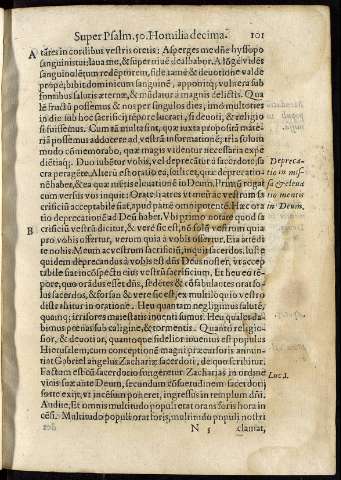 Super Psalm. 50. Homilia decima. 101
A tātes in cordibus vestris oretis: Asperges me dñe hyssopo
sanguinis tui: laua me, & super niuē dealbabor.
propè, bibit dominicum sanguinē, apponitq; vulnera sub
fontibus salutis æternæ, & mūdatur à magnis delictis. Qua
lē fructū possemus & nos per singulos dies, imò multories
io die sub hoc sacrificij tēpore lucrari, si deuoti, & religio
si fuissemus. Cum tā multa sint, quæ iuxta propositā mate-
riā possemus adducere ad vestrā informationē; tria solum
modo commemorabo, quæ magis videntur necessaria expe
dictioni. Duo iubētur vobis, vel deprecātur à sacerdote sa
cra peragēte. Alterū est oratio ea, scilicet, quæ deprecatio- Depreca-
nē habet, & ea quæ mētis eleuationē in Deum. Primū rogat
cum versus vos inquit: Orate fratres vt meū ac vestrum sa
crificiū acceptabile fiat, apud patrē omnipotentē. Hæc ora in Deum.
tio deprecationē ad Deū habet. Vbi primo notate quod sa
B crificiū vestrū dicitur, & verè sic est, nō solū vestrum quia
pro vobis offertur, verum quia à vobis offertur. Eia attēdi
te nobis. Meum ac vestrum sacrificiū, inquit sacerdos. Iustè
quidem deprecandos à vobis est dñs Deus noster: vt accep
tabile fiat in cōspectu eius vestrū sacrificium. Et heu eo tē-
pore, quo orādus esset dñs, sedētes & cōfabulantes orat so-
lus sacerdos, & forsan & verè sic est, ex multiloquio vestro
distrahitur in oratione. Heu quantam negligimus salutē,
quamq; irrisores maiestatis inuenti sumus. Heu quales da-
bimus pœnas sub caligine, & tormentis. Quanto religio-
sior, & deuotior, quantoque fidelior inuentus est populus
Hierusalem, cum conceptionē magni præcursoris annun-
tiat Gabriel angelus Zachariæ sacerdoti, de quo scribitur.
Factum est cū sacerdotio fungeretur Zacharias in ordine
vicis suæ ante Deum, secundum cōsuetudinem sacerdotij Luc. 1.
sorte exijt, vt incēsum poneret, ingressus in templum dñi.
Audite, Et omnis multitudo populi erat orans foris hora in
cēsi. Multitudo populi orat foris, multitudo populi nostri
N 5 clamat,